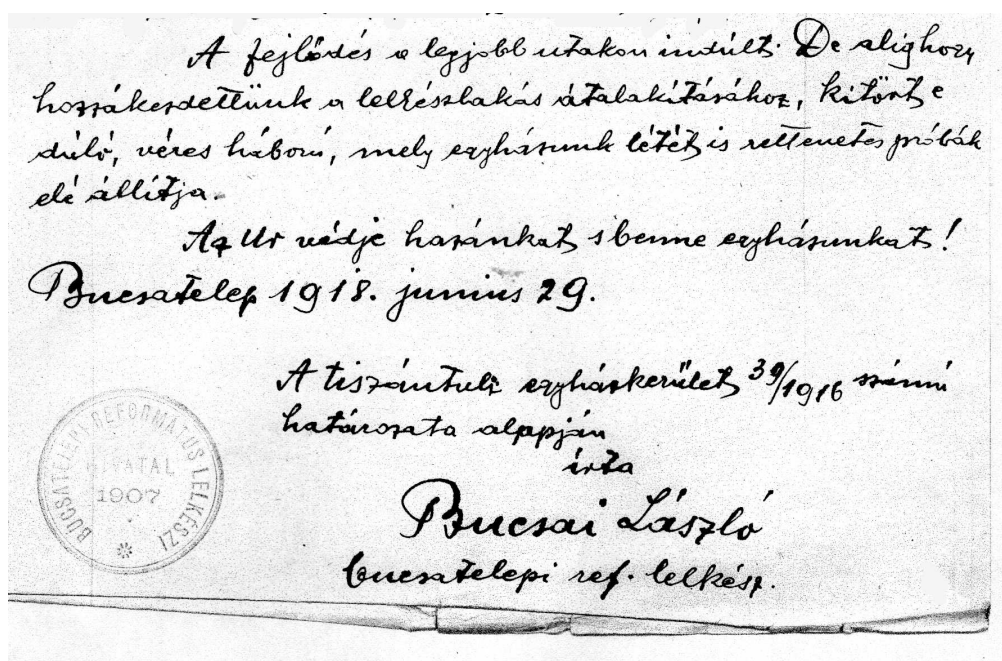 A fejlődés a legjobb utakon indúlt. De alighogy
hozzákezdettünk a lelkészlakás átalakitásához, kitört e
dúló, véres háború, mely egyházunk létét is rettenetes próbák
elé állítja.
Az Ur védje hazánkat s benne egyházunkat!
Bucsatelep 1918. junius 29.
A tiszántuli egyházkerület 39/1916 számú
határozata alapján
írta
Bucsai László
bucsatelepi ref. lelkész.
BUCSATELEPI REFORMÁTUS LELKÉSZI
HIVATAL
1907